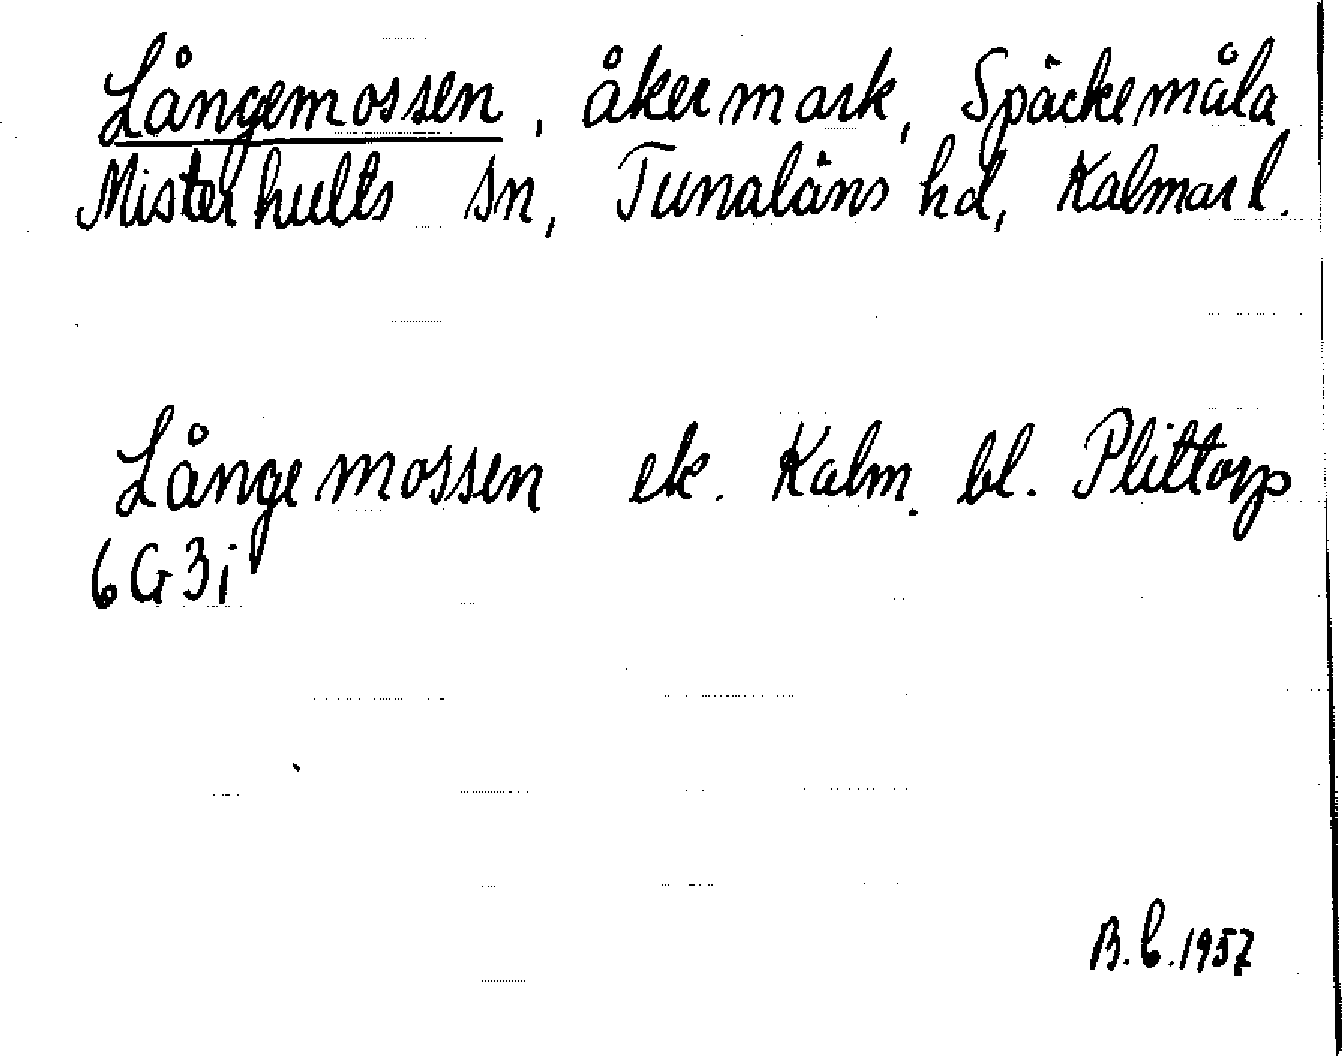 Långemossen, åkermark, Späckemåla
Misterhults sn, Tunaläns hd, Kalmar l.
Långemossen ek. Kalm. bl. Plittorp
6G3i
B.C.1957